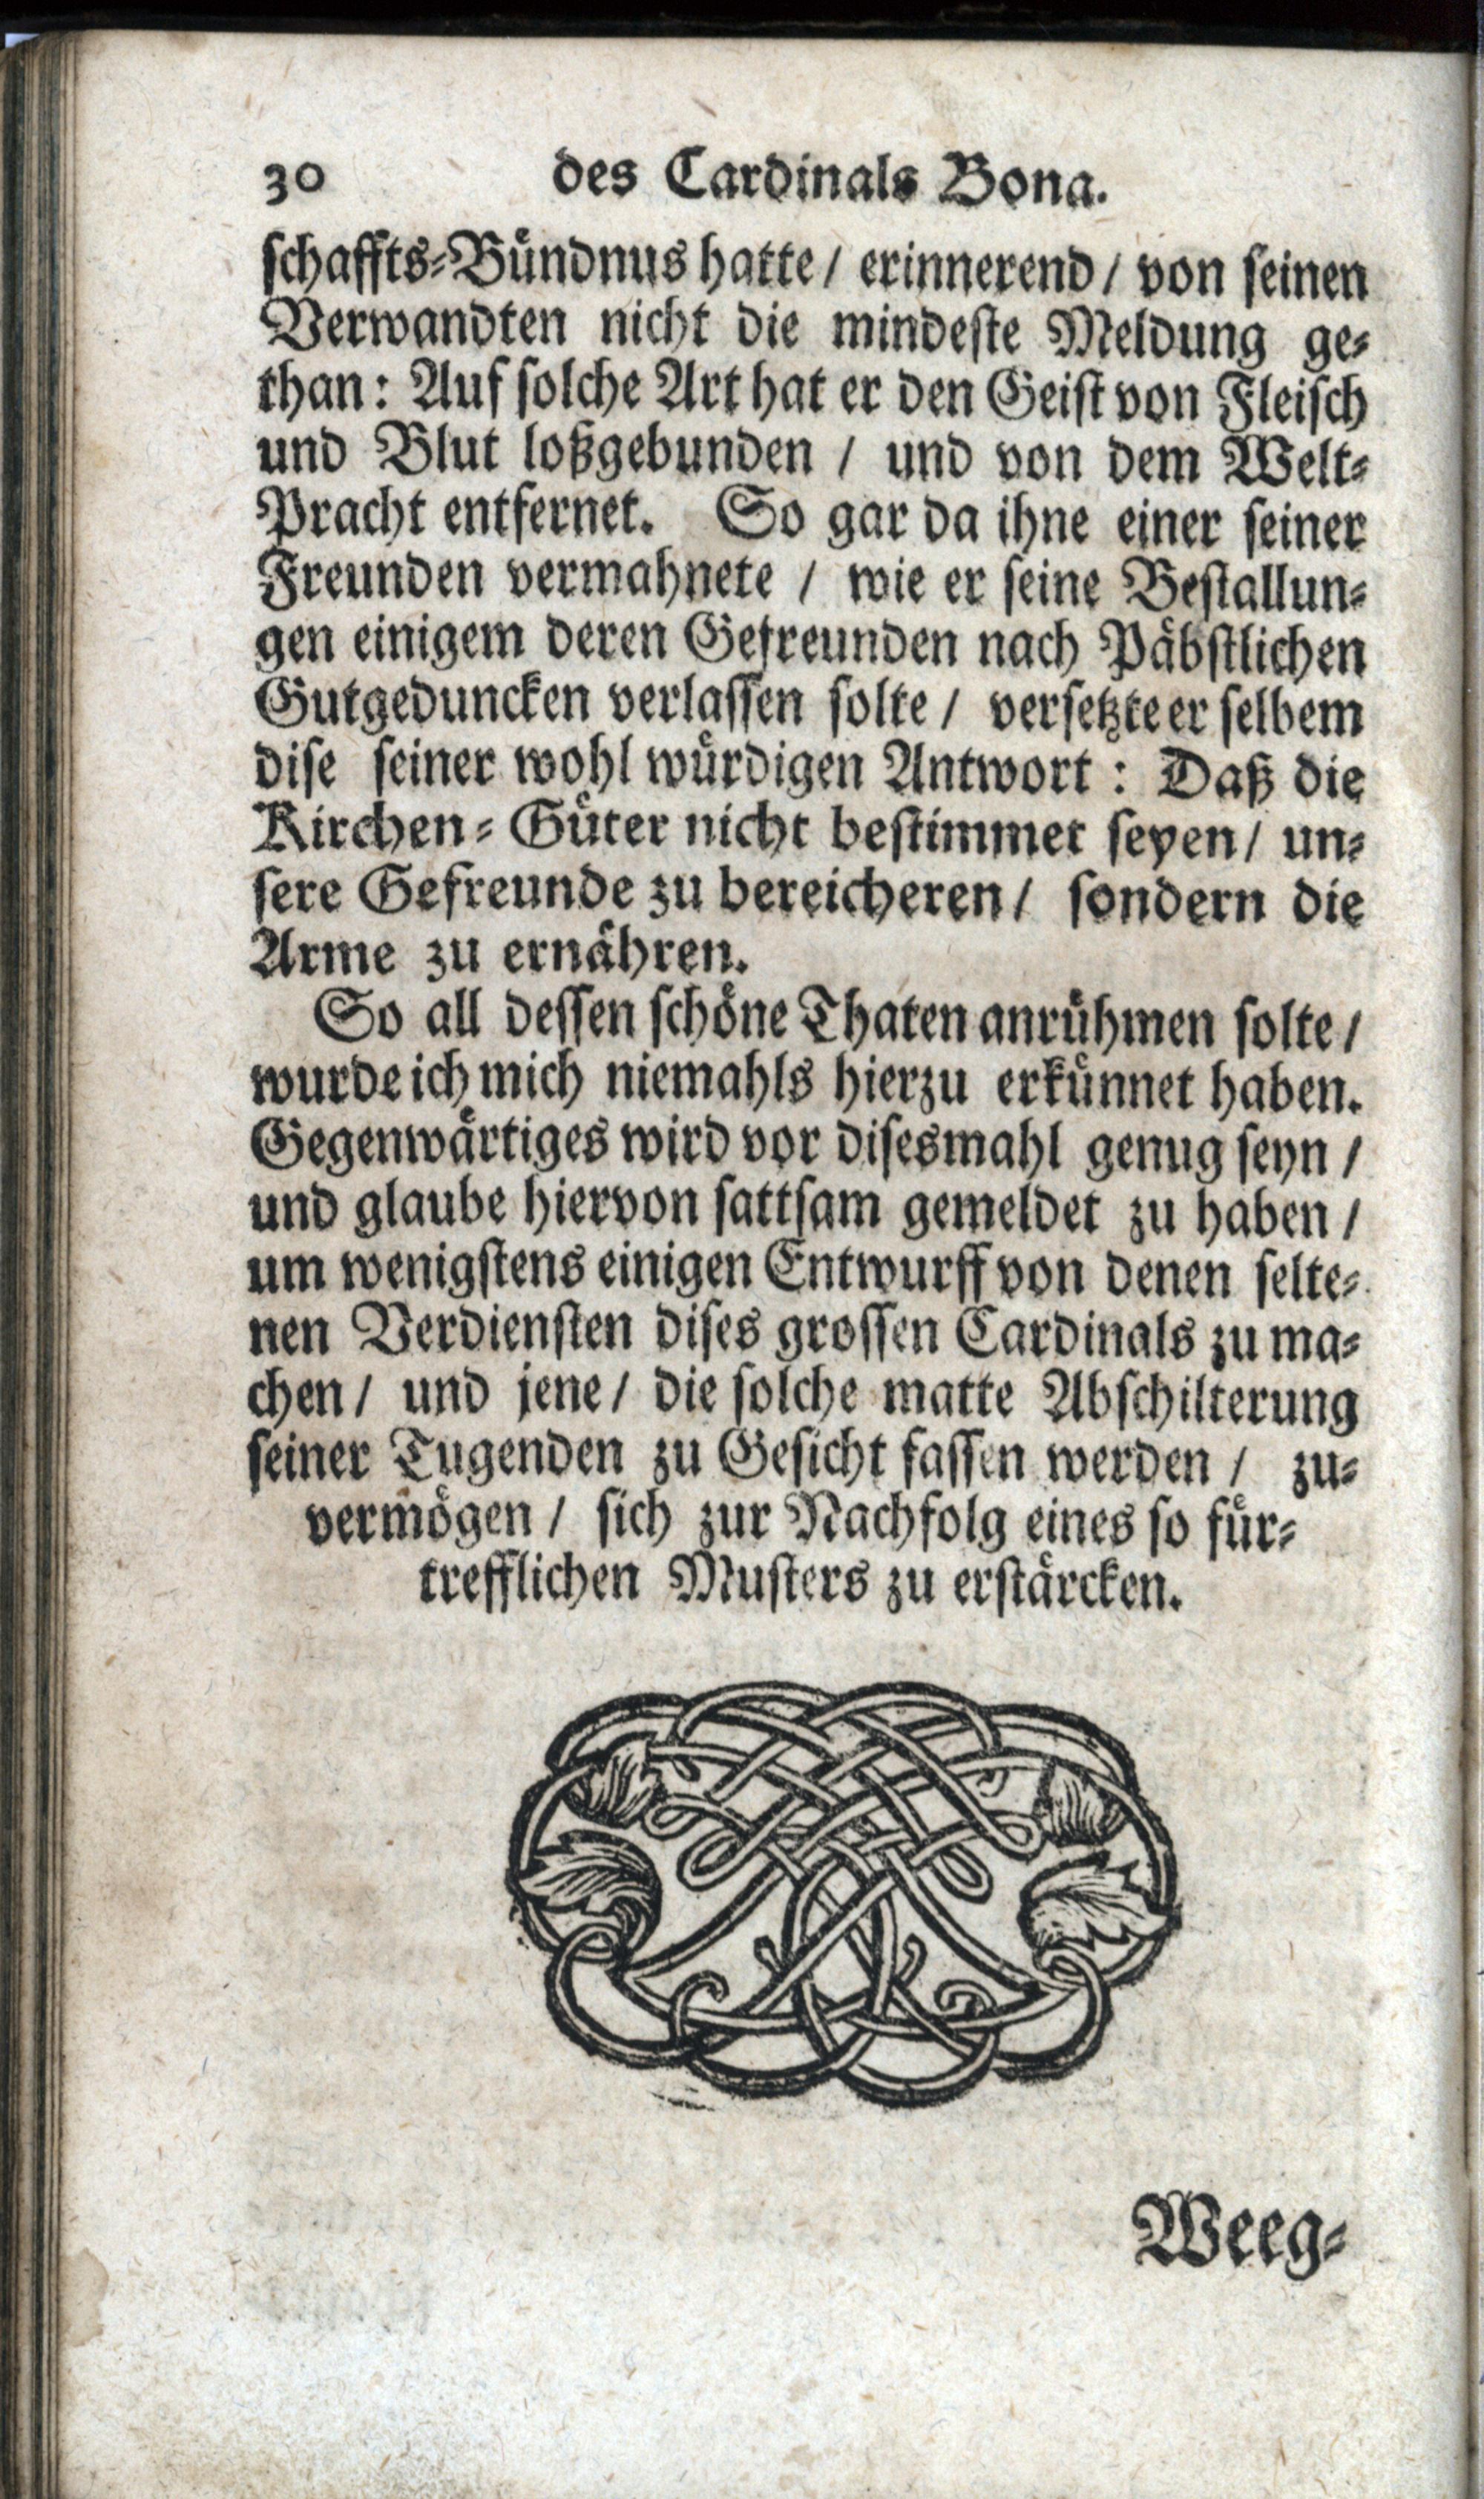 30 des Cardinals Bona.
schaffts-Bündnus hatte / erinnerend / von seinen
Verwandten nicht die mindeste Meldung ge-
than: Auf solche Art hat er den Geist von Fleisch
und Blut loßgebunden / und von dem Welt-
Pracht entfernet. So gar da ihne einer seiner
Freunden vermahnete / wie er seine Bestallun-
gen einigem deren Gefreunden nach Päbstlichen
Gutgeduncken verlassen solte / versetzte er selbem
dise seiner wohl würdigen Antwort : Daß die
Kirchen-Güter nicht bestimmet seyen / un-
sere Gefreunde zu bereicheren / sondern die
Arme zu ernähren.
So all dessen schöne Thaten anrühmen solte /
wurde ich mich niemahls hierzu erkünnet haben.
Gegenwärtiges wird vor disesmahl genug seyn /
und glaube hiervon sattsam gemeldet zu haben /
um wenigstens einigen Entwurff von denen selte-
nen Verdiensten dises grossen Cardinals zu ma-
chen / und jene / die solche matte Abschilterung
seiner Tugenden zu Gesicht fassen werden / zu-
vermögen / sich zur Nachfolg eines so für-
trefflichen Musters zu erstärcken.
Weeg-